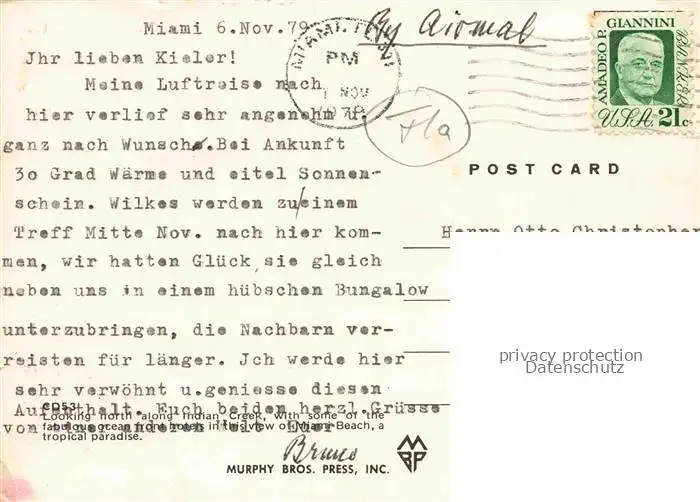 Miami 6.Nov.79
By Airmail
Jhr lieben Kieler!
Meine Luftreise nach
hier verlief sehr angenehm u.
ganz nach Wunsch. Bei Ankunft
3o Grad Wärme und eitel Sonnen-
schein. Wilkes werden zu/einem
Treff Mitte Nov. nach hier kom-
men, wir hatten Glück, sie gleich
neben uns in einem hübschen Bungalow
unterzubringen, die Nachbarn ver-
reisten für länger. Jch werde hier
sehr verwöhnt u.geniesse diesen
Aufenthalt. Euch beiden herzl.Grüsse
von einer anderen Welt Euer
Bruno
CD53
Looking north along Indian Creek, with some of the
fabulous ocean front hotels in this view of Miami Beach, a
tropical paradise.
MURPHY BROS. PRESS, INC.
MBP
MIAMI,
PM
NOV
Fla
AMADEO P. GIANNINI
BANKER
U.S.A. 21c
POST CARD
Herrn Otto
privacy protection
Datenschutz